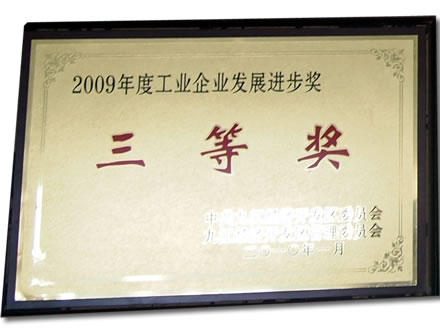 2009年度工业企业发展进步奖
三等奖
中 委员会
九 管理委员会
二〇一〇年一月